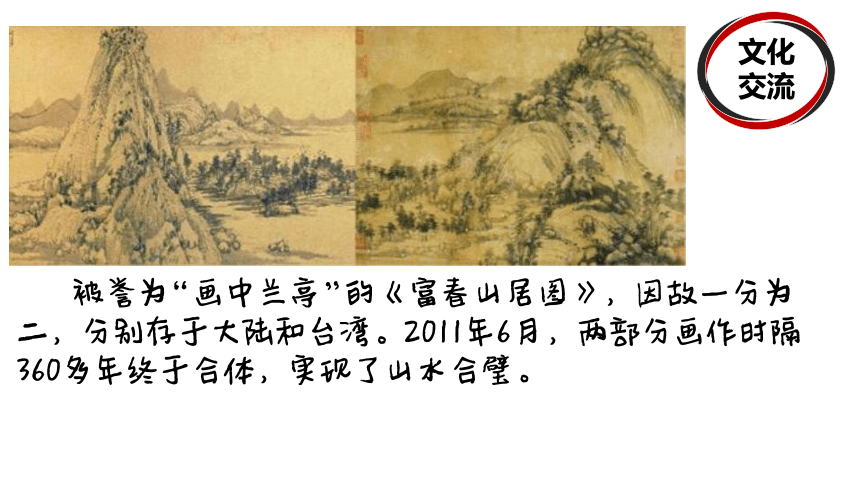 文化
交流
被誉为“画中兰亭”的《富春山居图》，因故一分为
二，分别存于大陆和台湾。2011年6月，两部分画作时隔
360多年终于合体，实现了山水合璧。